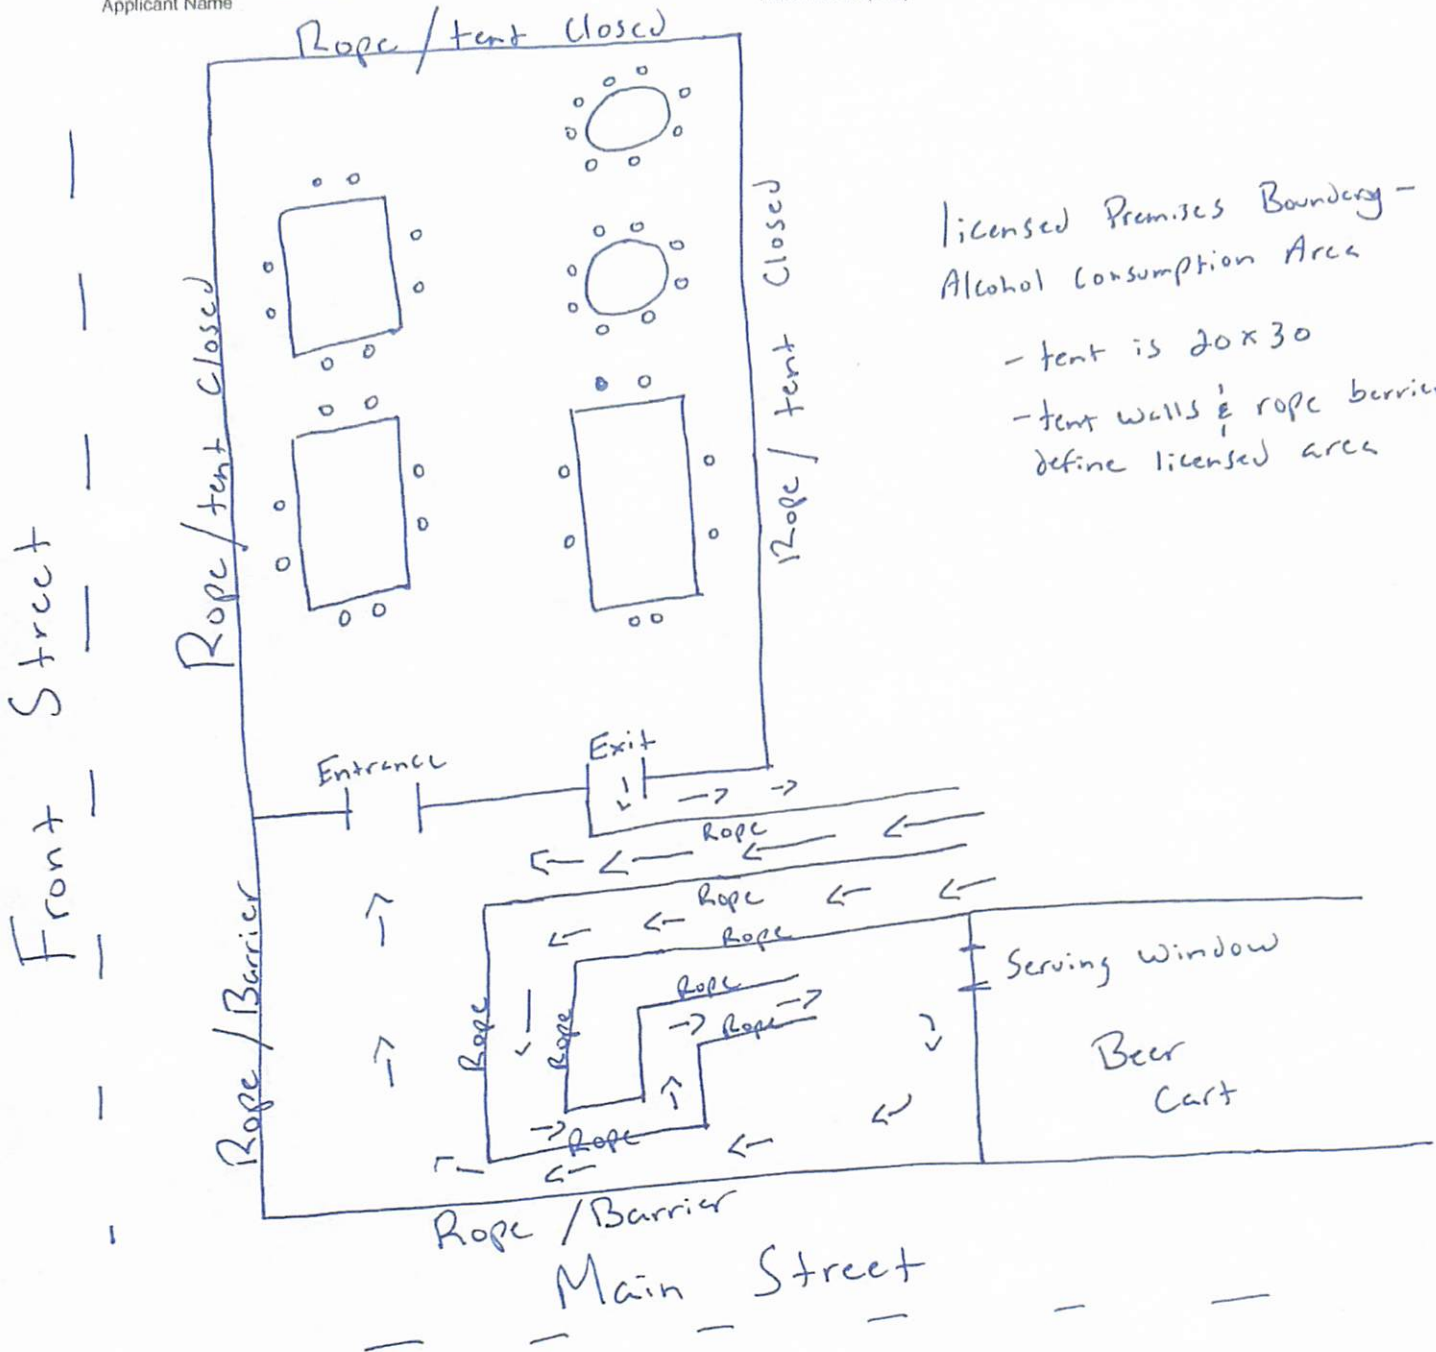 Applicant Name
Rope / tent Closed
Rope / tent Closed
Rope / tent Closed
licensed Premises Boundary -
Alcohol Consumption Area
- tent is 20 x 30
- tent walls & rope barrie
define licensed area
Front Street
Entrance
Exit
Rope
Rope
Rope
Rope
Rope
Rope
Rope
Rope
Serving window
Beer
Cart
Rope / Barrier
Rope / Barrier
Main Street